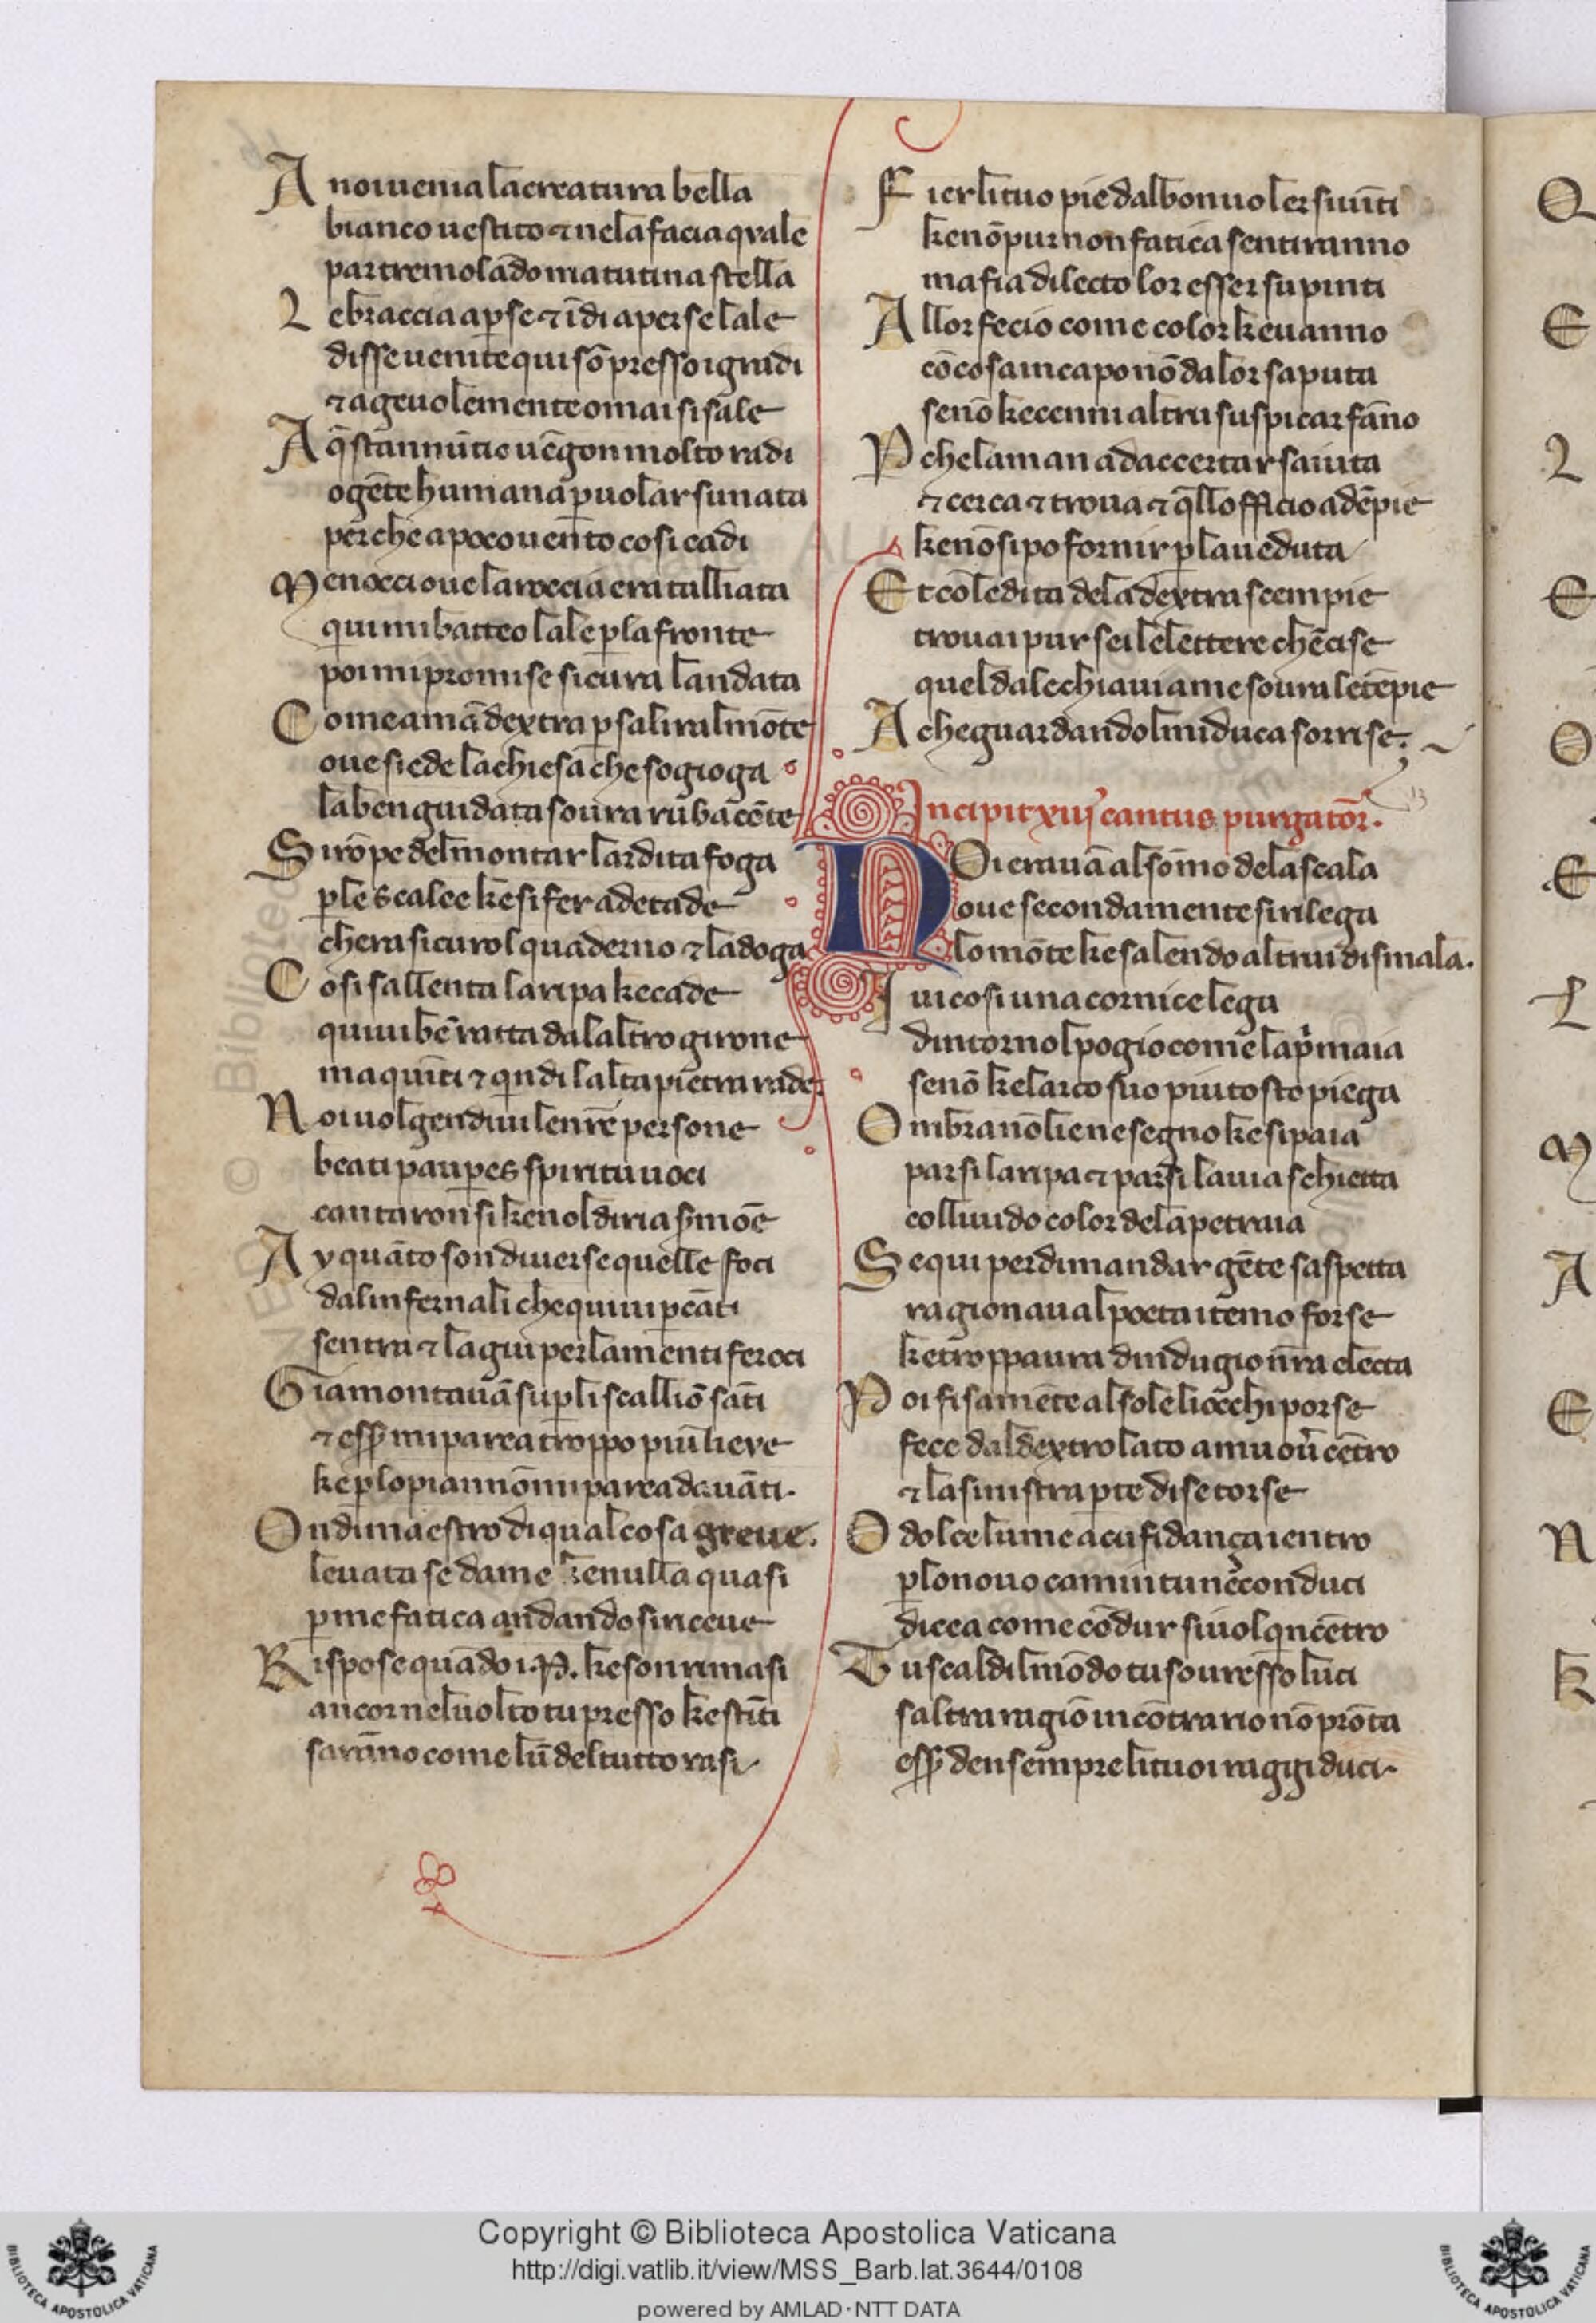 A noi uenia la creatura bella
bianco uestito ⁊ ne la facia qvale
par tremolādo matutina stella
L e braccia aꝑse ⁊ īdi aperse lale
disse uenite qui sō presso i gradi
⁊ ageuolemente omai si sale
A q̄sta nnūtio uēgon molto radi
o gēte humana ꝑ uolar su nata
perche a poco uento cosi cadi
M enocci oue la roccia era talliata
quiui mi batteo lale ꝑ la fronte
poi mi promise sicura landata
C ome a mā dextra ꝑ salir al mōte
oue siede la chiesa che sogioga
la ben guidata soura rubacōte
S i rōpe del montar lardita foga
ꝑ le scalee ke si fer ad etade
chera sicuro l quaderno ⁊ la doga
C osi sallenta la ripa ke cade
quiui bē ratta dal altro girone
ma quīci ⁊ qndi lalta pietra rade
N oi uolgendiui le nr̄e persone
beati pauꝑes spiritu uoci
cantaron si ke nol diria sermōe
A y quāto son diuerse quelle foci
dal infernali che quiui ꝑ cāti
sentra ⁊ la giu per lamenti feroci
G ia montauā su ꝑ li scalliō sāti
⁊ esser mi parea troppo piu lieve
ke ꝑ lo pian nō mi parea dauāti.
O ndi maestro di qual cosa greue.
leuata se da me ke nulla quasi
ꝑ me fatica andando si riceue
R ispose quādo i .P. ke son rimasi
ancor nel uolto tu presso ke stīti
sarāno come lū del tutto rasi
F ier li tuo pie dal bon uoler si uīti
ke nō pur non fatica sentiranno
ma fia dilecto lor esser su pinti
A llor fecio come color ke uanno
cō cosa in capo nō da lor saputa
se nō ke cenni altrui suspicar fāno
P che la man ad accertar saiuta
⁊ cerca ⁊ troua ⁊ q̄ll officio adēpie
ke nō si po fornir ꝑ la ueduta
E t cō le dita de la dextra scempie
trouai pur sei le lettere chēcise
quel da le chiaui a me soura le tēpie
A che guardando l mi duca sorrise.
13
Incipit xiij cantus purgatōr.
N Oi erauā al sōmo de la scala
oue secondamente si rilega
lo mōte ke salendo altrui dismala.
I ui cosi una cornice lega
dintorno l pogio come la pⁱmaia
se nō ke larco suo piu tosto piega
O mbra nō li e ne segno ke si paia
par si la ripa ⁊ par si la uia schietta
col liuido color de la petraia
S e qui per dimandar gēte saspetta
ragionaua l poeta i temo forse
ke trop paura dindugio nr̄a electa
P oi fisamēte al sole li occhi porse
fece dal dextro lato a muou' cētro
⁊ la sinistra ꝑte di se torse
O dolce lume a cu fidança i entro
ꝑ lo nouo camin tu ne conduci
dicea come cōdur si uol quincētro
T u scaldi l mōdo tu souresso luci
saltra ragiō in cōtrario nō prōta
esser den sempre li tuoi raggi duci.
Copyright © Biblioteca Apostolica Vaticana
http://digi.vatlib.it/view/MSS_Barb.lat.3644/0108
powered by AMLAD·NTT DATA
BIBLIOTECA APOSTOLICA VATICANA
BIBLIOTECA APOSTOLICA VATICANA